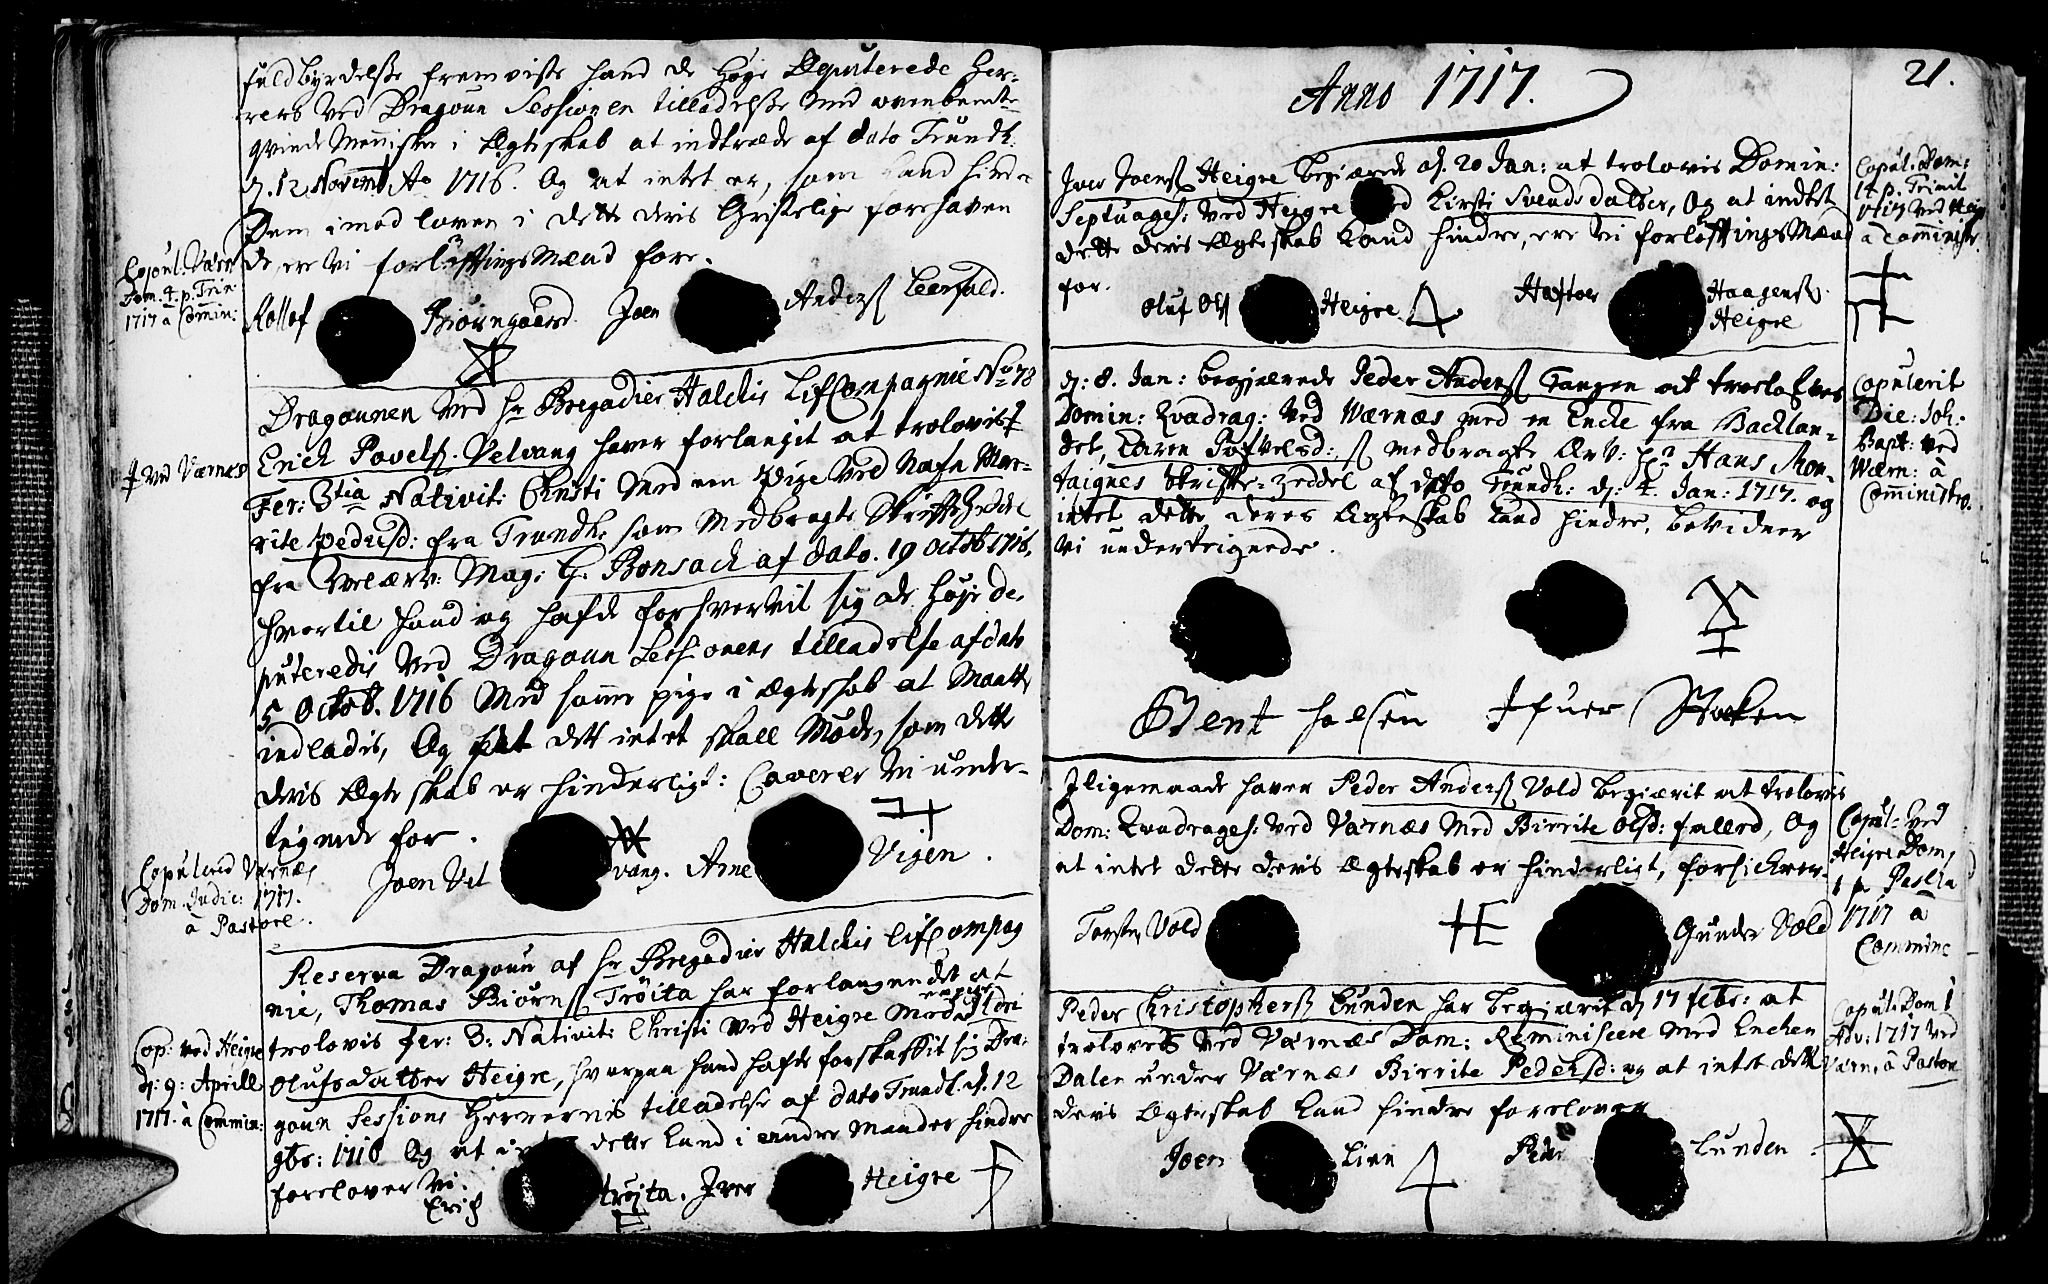 fuldbyrdelsse fremviste hand de Høye Deputerede Her-
rers ved Dragoun Sessionen tilladelsse med ovenbemte
qvinde Menniske i Ægteskab at indtræde af dato Trundh:
d. 12 Novemb Ao 1716. Og at intet er, som kand hindre
Dem imod loven i dette deris Christelige forehaven
de, ere vi forløftings Mænd fore.
Copul. Værn
Dom. 4. p. Trin
1717 a Comin:
Rollof Biørngaard. Joen Anderss Leerfald.
Dragounen ved hr Bregadier Halckis Lif Compagnie No 78
Erich Povelss. Velvang haver forlanget at trolovis
† ved Værnes
Fer: 3tia Nativit: Christi med een Pige ved Nafn Mar-
rite Pedersd: fra Trundh. som medbragte Skrifte Zedel
fra Velærv: Mag: H. Bonsach af dato. 19 Octob 1716.
hvortil hand og hafde forhvervit sig de Høye de-
puteredis ved Dragoun Sessionens tilladelse af dato
5 Octob. 1716 med samme pige i Ægteskab at Maatte
indladis, Og at dett intet skall Møde, som dette
deris Ægteskab er hinderligt: Caverer vi under-
tegnede for.
Joen Vel vang. Arne Vigen.
Copulered Værnes
Dom. Judic: 1717.
a Pastore.
Reserva Dragoun af hr Bregadier Halckis lifCompag
nie, Thomas Biørnss Trøita har forlangendet at
trolovis fer: 3: Nativit: Christi ved Heigre Med
Cop: ved Heigre
d: 9: Aprill
1717. a Commin:
Olufsdatter Heigre, hvorpaa hand hafde forskaffit sig Dra-
goun Sessions Herrernis tilladelse af dato Trundh. d. 12
9br: 1716 Og at intet dette kand i andre Maader hindre
forelover vi.
Erich trøita. Iver Heigre
21.
Anno 1717.
Iver Joenss Heigre begiærede d. 20 Jan: at trolovis Domin:
Septuages: ved Heigre med Kirsti Svends datter, Og at indtet
dette deris Ægteskab kand hindre, ere vi forløftings Mænd
for.
Copul. Dom:
14 p. Trinit
1717 ved Heigr
a Cominist.
Oluf Olss Heigre Haftor Haagenss.
Heigre
d: 8. Jan: begiærede Peder Anderss Tangen at troelofves
Domin: Qvadrag: ved Wærnæs med en Encke fra Backlan-
det, Karen Tofvelsd: medbragte Ærv: Hr Hans Mon-
taignes Skrifte-zeddel af dato Trundh: d: 4. Jan: 1717. og
intet dette deres Ægteskab kand hindre, bevidner
vi underteignede.
Copulerit
Die: Joh:
Bapt: ved
Wærn: a
Cōministro.
Bent Halsen Ifuer Stocken
Iligemaade haver Peder Anderss Vold begiærit at trolovis
Dom: Qvadrages: ved Værnæs med Birrite Olsd: fallerd, Og
at intet dette deris Ægteskab er hinderligt, forsichrer
Copul: ved
Heigre Dom,
1 p. Pascha
1717 a
Commini
Torsten Vold Gunder Vold
Peder Christopherss Lunden har begiærit d 17 febr: at
trolovets ved Værnæs Dom: Reminiscere med Enchen
Dalen under Værnæs Birrite Pedersd: og at intet dett
deris Ægteskab kand hindre forelover
Copul: Dom 1
Adv: 1717 ved
Værn, a Pastore
Joen Lien Peder Lunden